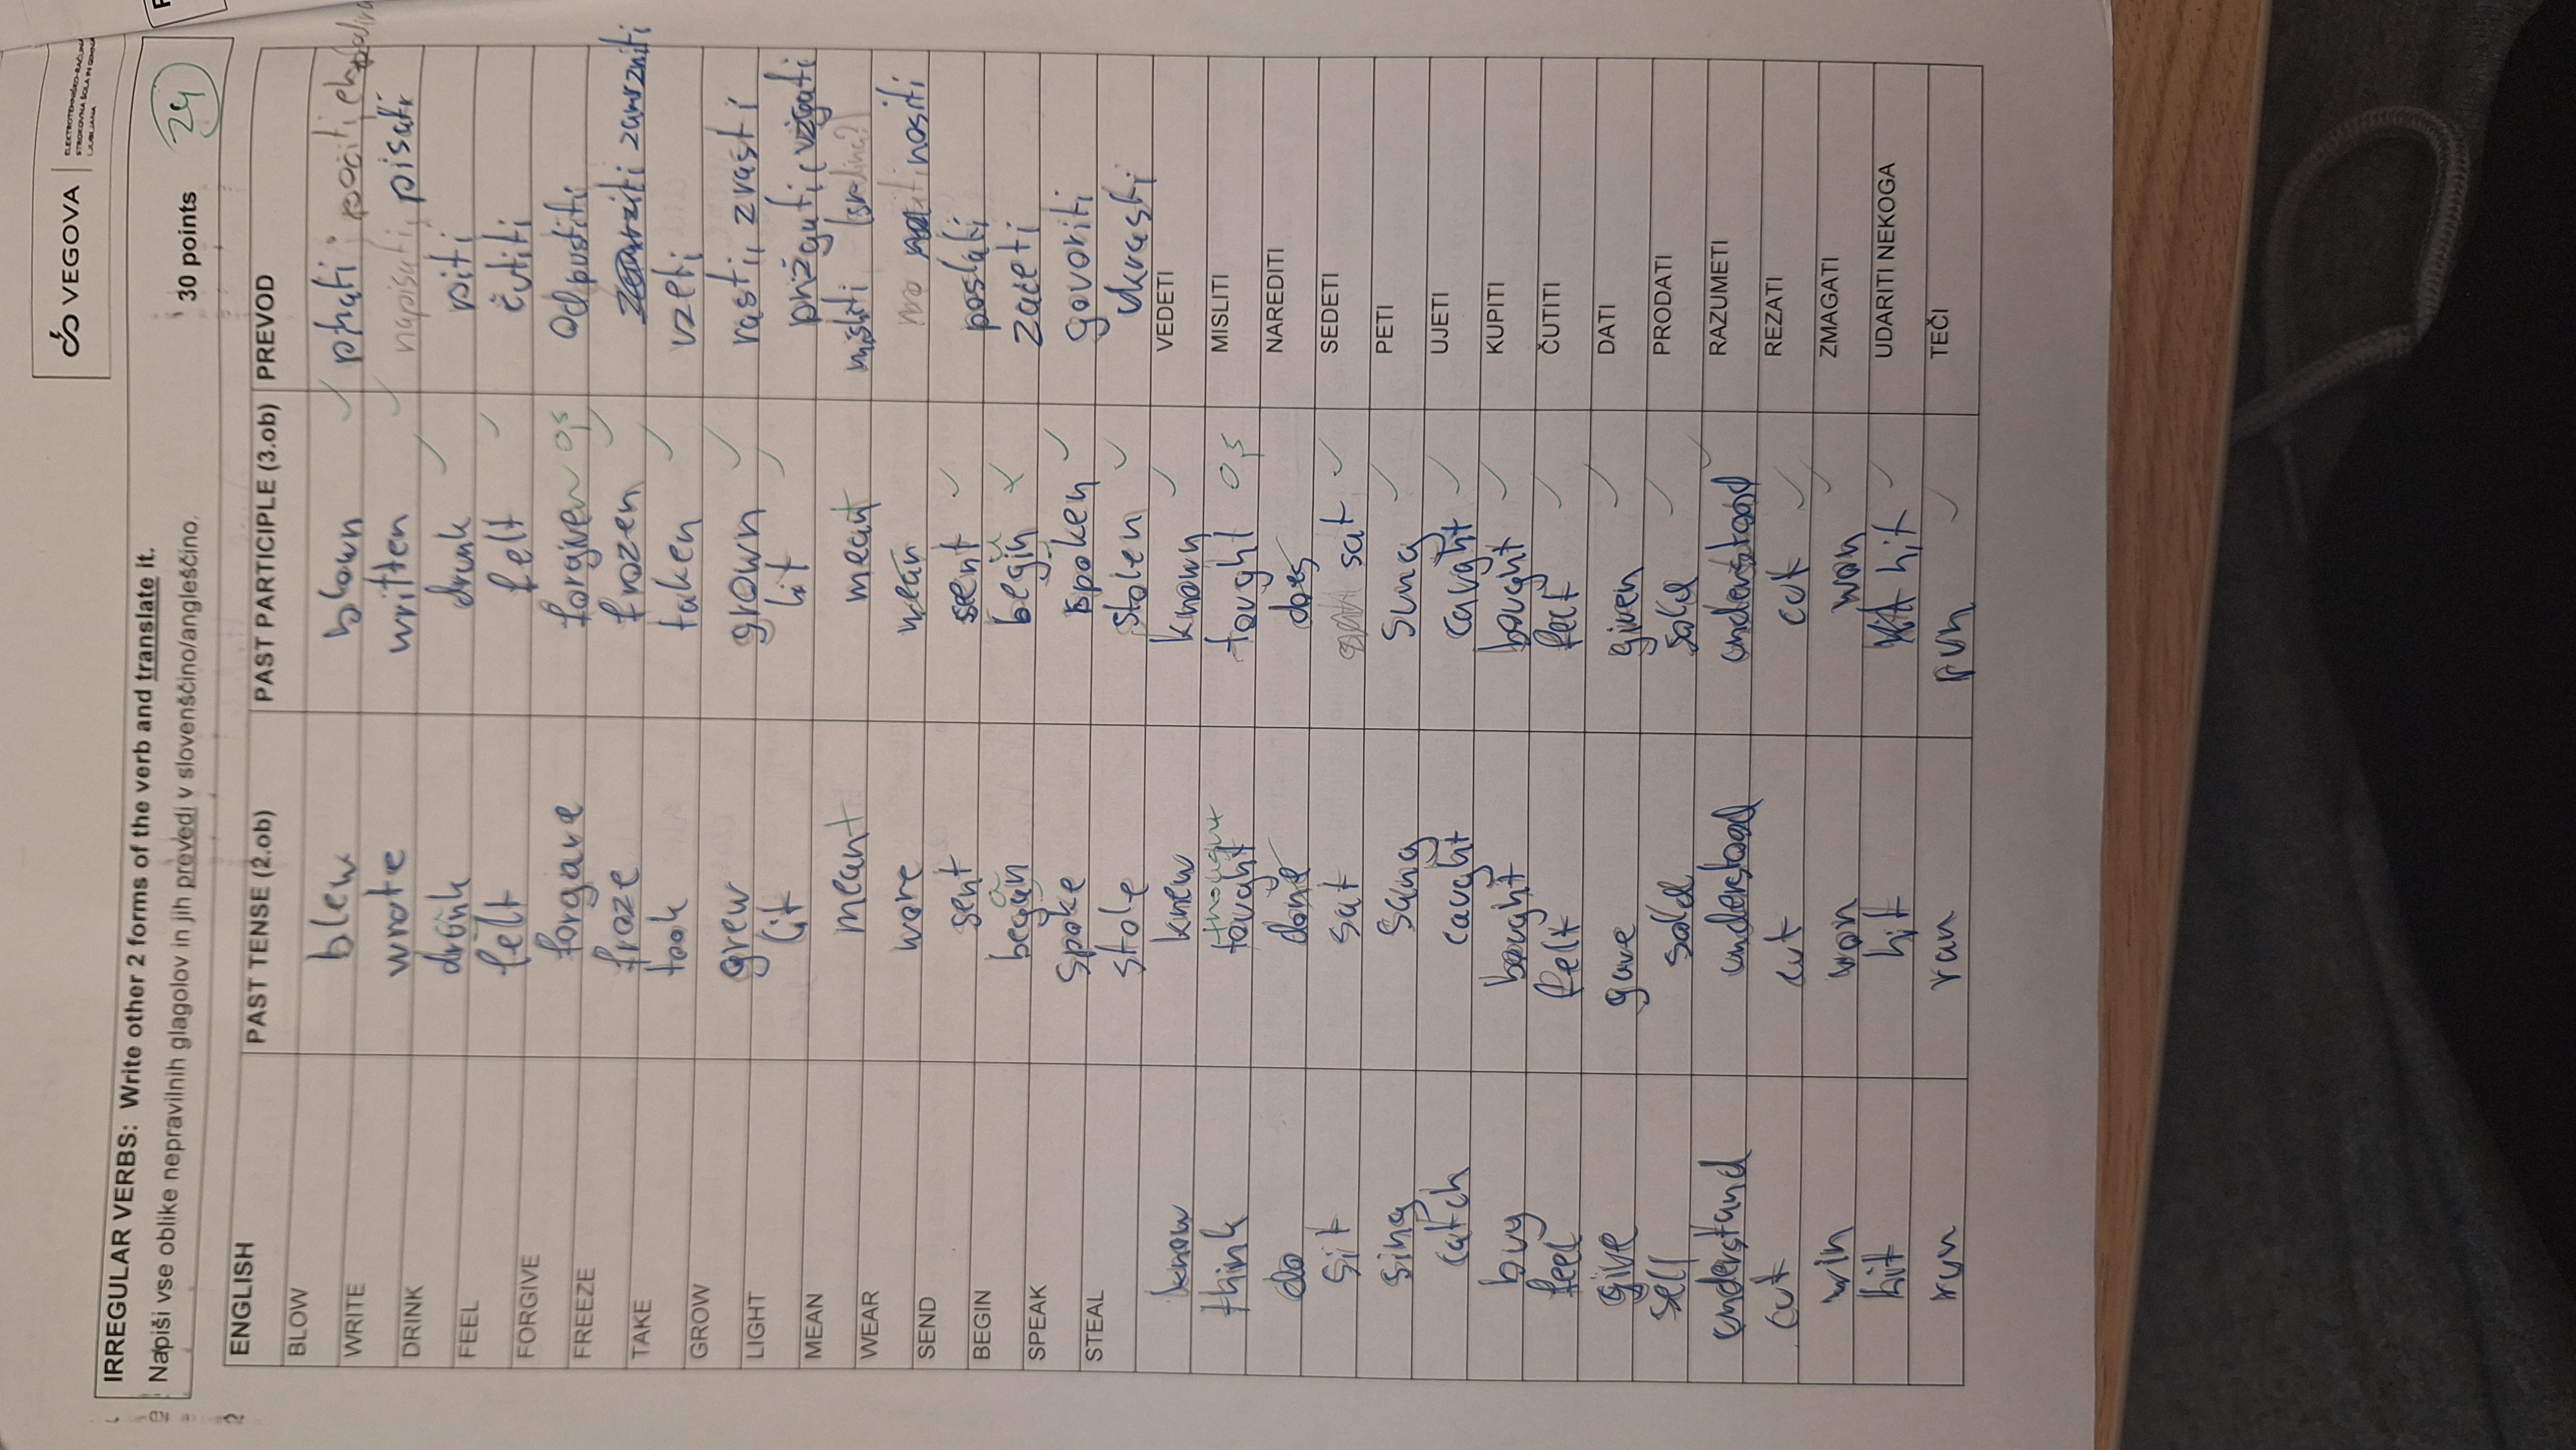 VEGOVA
ELEKTROTEHNIŠKO-RAČUN
STROKOVNA ŠOLA IN GIMNA
LJUBLJANA
IRREGULAR VERBS: Write other 2 forms of the verb and translate it.
Napiši vse oblike nepravilnih glagolov in jih prevedi v slovenščino/angleščino.
30 points 24
ENGLISH PAST TENSE (2.ob) PAST PARTICIPLE (3.ob) PREVOD
BLOW blew blown pihati, počiti,
WRITE wrote written napisati, pisati
DRINK drank drunk piti
FEEL felt felt čutiti
FORGIVE forgave forgiven 0,5 Odpustiti
FREEZE froze frozen zamrzniti
TAKE took taken vzeti
GROW grew grown rasti, zrasti
LIGHT lit lit prižgati, vžgati
MEAN meant meant misliti (sredina?)
WEAR wore wearn nositi
SEND sent sent poslati
BEGIN begun a begin u začeti
SPEAK spoke spoken govoriti
STEAL stole stolen ukrasti
know knew known VEDETI
thought
think tought tought 0,5 MISLITI
do done does NAREDITI
sit sat sat SEDETI
sing sang sung PETI
catch caught caught UJETI
buy bought bought KUPITI
feel felt felt ČUTITI
give gave given DATI
sell sold sold PRODATI
understand understood understood RAZUMETI
cut cut cut REZATI
win won won ZMAGATI
hit hit hit UDARITI NEKOGA
run ran run TEČI